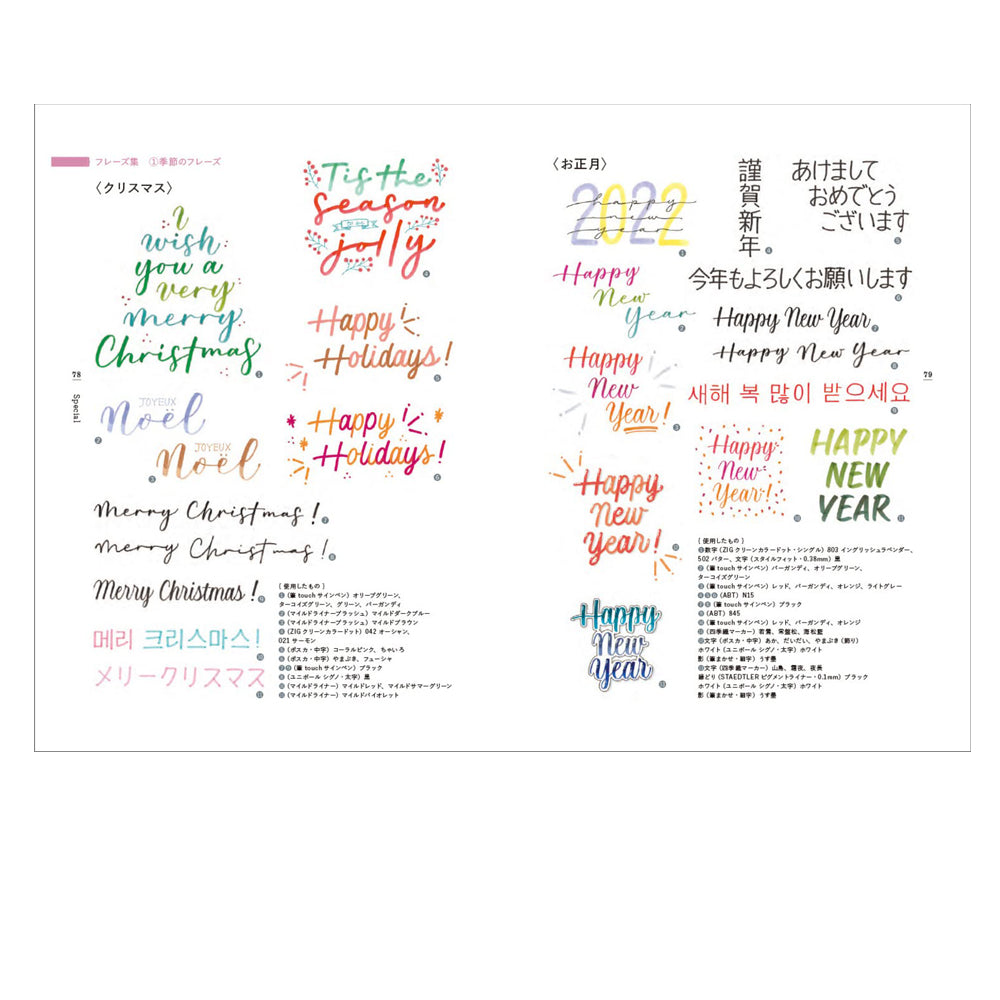 フレーズ集 ①季節のフレーズ
〈クリスマス〉
i
wish
you a
very
merry
Christmas
①
JOYEUX
Noël
②
JOYEUX
Noël
③
Merry Christmas!
⑦
Merry Christmas!
⑧
Merry Christmas!
⑨
메리 크리스마스!
⑩
メリークリスマス
⑪
Tis the
season
jolly
④
Happy
Holidays!
⑤
Happy
Holidays!
⑥
{ 使用したもの }
①(筆touchサインペン)オリーブグリーン、
ターコイズグリーン、グリーン、バーガンディ
②(マイルドライナーブラッシュ)マイルドダークブルー
③(マイルドライナーブラッシュ)マイルドブラウン
④(ZIG クリーンカラードット)042 オーシャン、
021 サーモン
⑤(ポスカ・中字)コーラルピンク、ちゃいろ
⑥(ポスカ・中字)やまぶき、フューシャ
⑦⑧(筆touchサインペン)ブラック
⑨(ユニボール シグノ・太字)黒
⑩(マイルドライナー)マイルドレッド、マイルドサマーグリーン
⑪(マイルドライナー)マイルドバイオレット
78
Special
〈お正月〉
2022
happy
new
year
①
Happy
New
Year
②
Happy
New
Year!
③
謹賀新年
④
あけまして
おめでとう
ございます
⑤
今年もよろしくお願いします
⑥
Happy New Year
⑦
Happy New Year
⑧
새해 복 많이 받으세요
⑨
Happy
New
Year!
⑩
HAPPY
NEW
YEAR
⑪
Happy
New
Year!
⑫
Happy
New
Year
⑬
{ 使用したもの }
①数字(ZIG クリーンカラードット・シングル)803 イングリッシュラベンダー、
502 バター、文字(スタイルフィット・0.38mm)黒
②(筆touchサインペン)バーガンディ、オリーブグリーン、
ターコイズグリーン
③(筆touchサインペン)レッド、バーガンディ、オレンジ、ライトグレー
④⑤⑥(ABT)N15
⑦⑧(筆touchサインペン)ブラック
⑨(ABT)845
⑩(筆touchサインペン)レッド、バーガンディ、オレンジ
⑪(四季織マーカー)若鶯、常盤松、海松藍
⑫文字(ポスカ・中字)あか、だいだい、やまぶき(飾り)
ホワイト(ユニボール シグノ・太字)ホワイト
影(筆まかせ・細字)うす墨
⑬文字(四季織マーカー)山鳥、霜夜、夜長
縁どり(STAEDTLER ピグメントライナー・0.1mm)ブラック
ホワイト(ユニボール シグノ・太字)ホワイト
影(筆まかせ・細字)うす墨
79